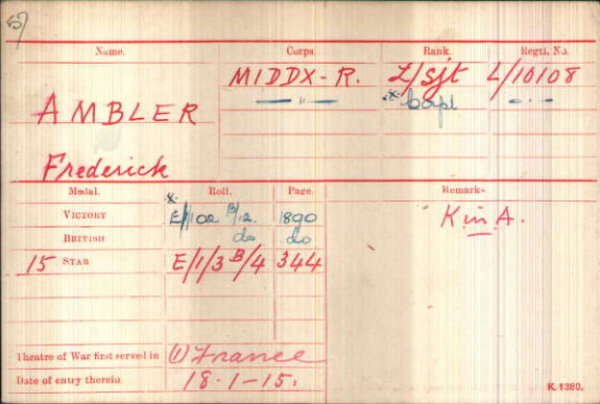 57
Name. Corps. Rank. Regtl. No.
MIDDX-R. L/Sjt L/10108
AMBLER — " — * Corpl — " —
Frederick
Medal. Roll. Page. Remarks
VICTORY * E/1/102 B/12. 1890 K in A.
BRITISH do do
15 STAR E/1/3 B/4 344
Theatre of War first served in (1) France
Date of entry therein 18-1-15.
K. 1380.